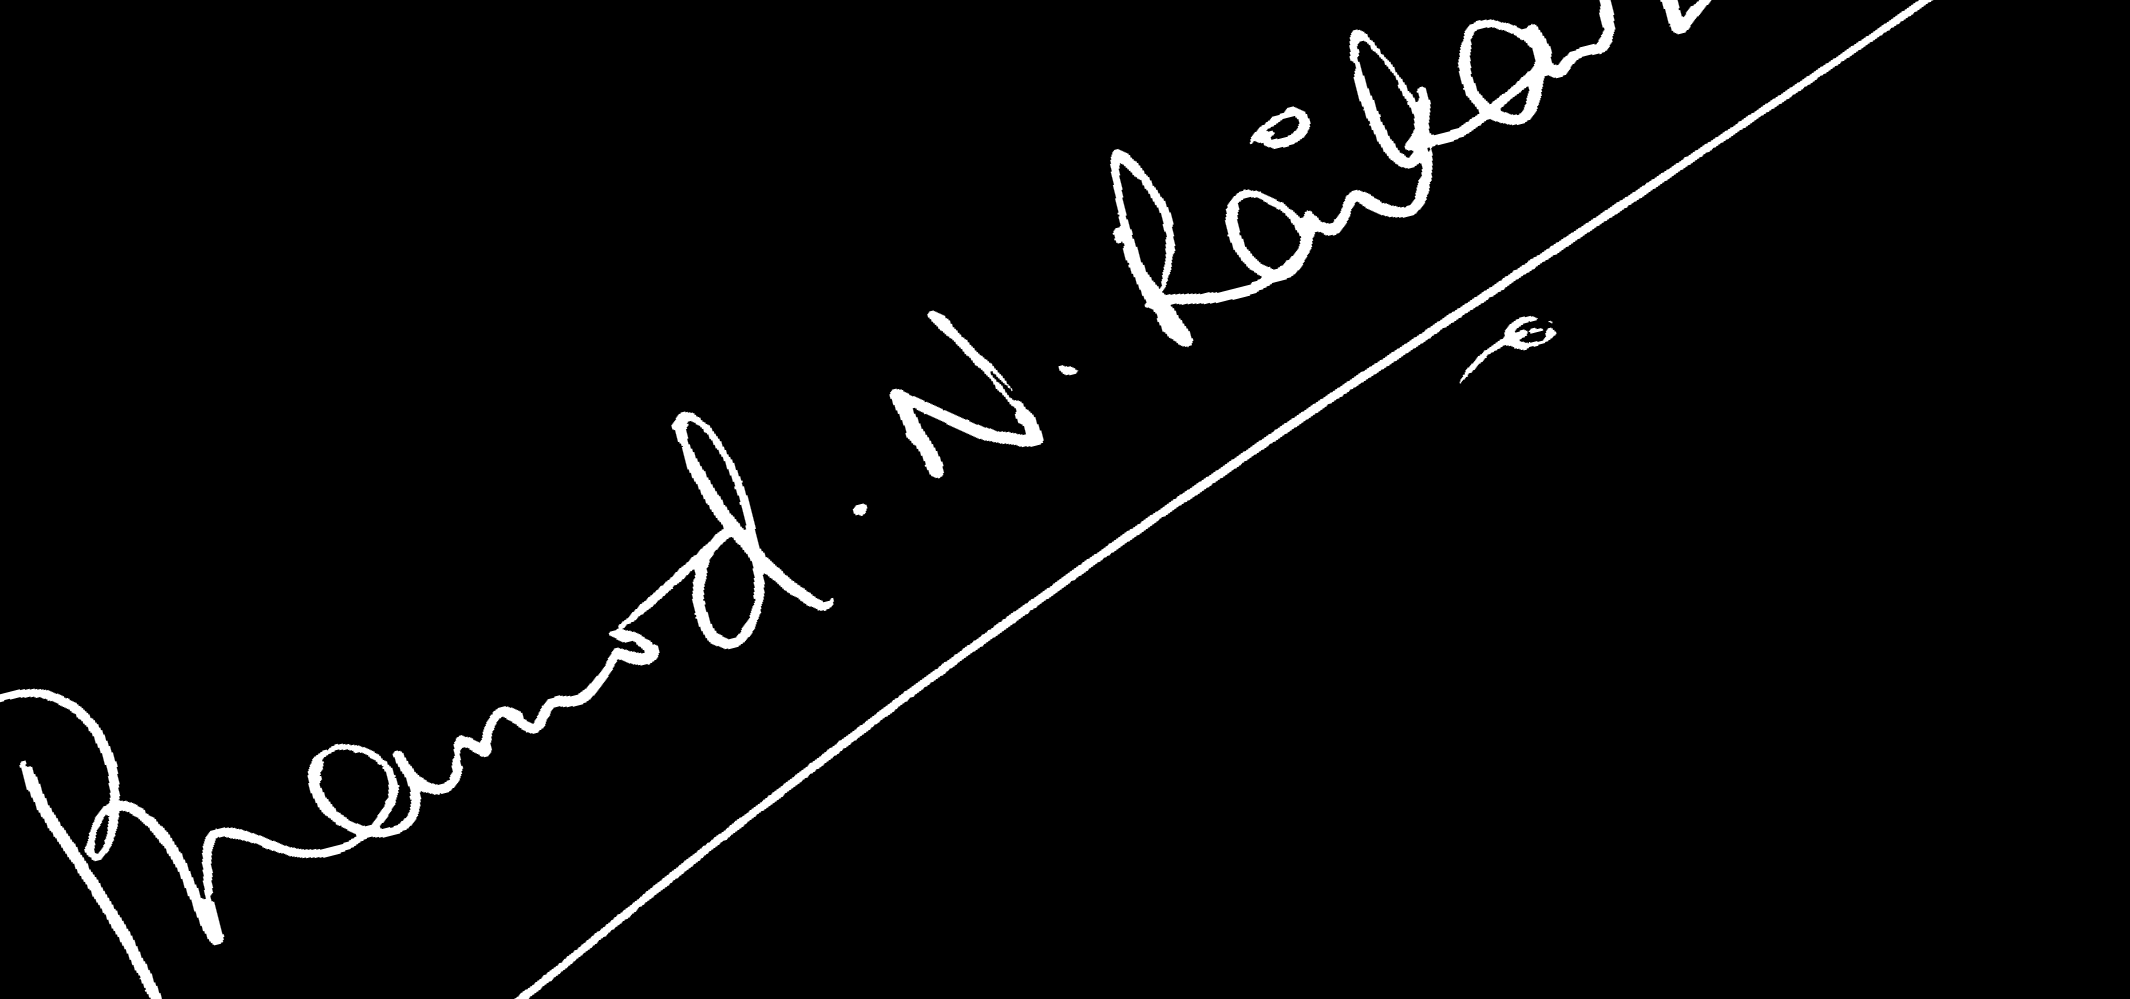 Pramod . N. Raikar